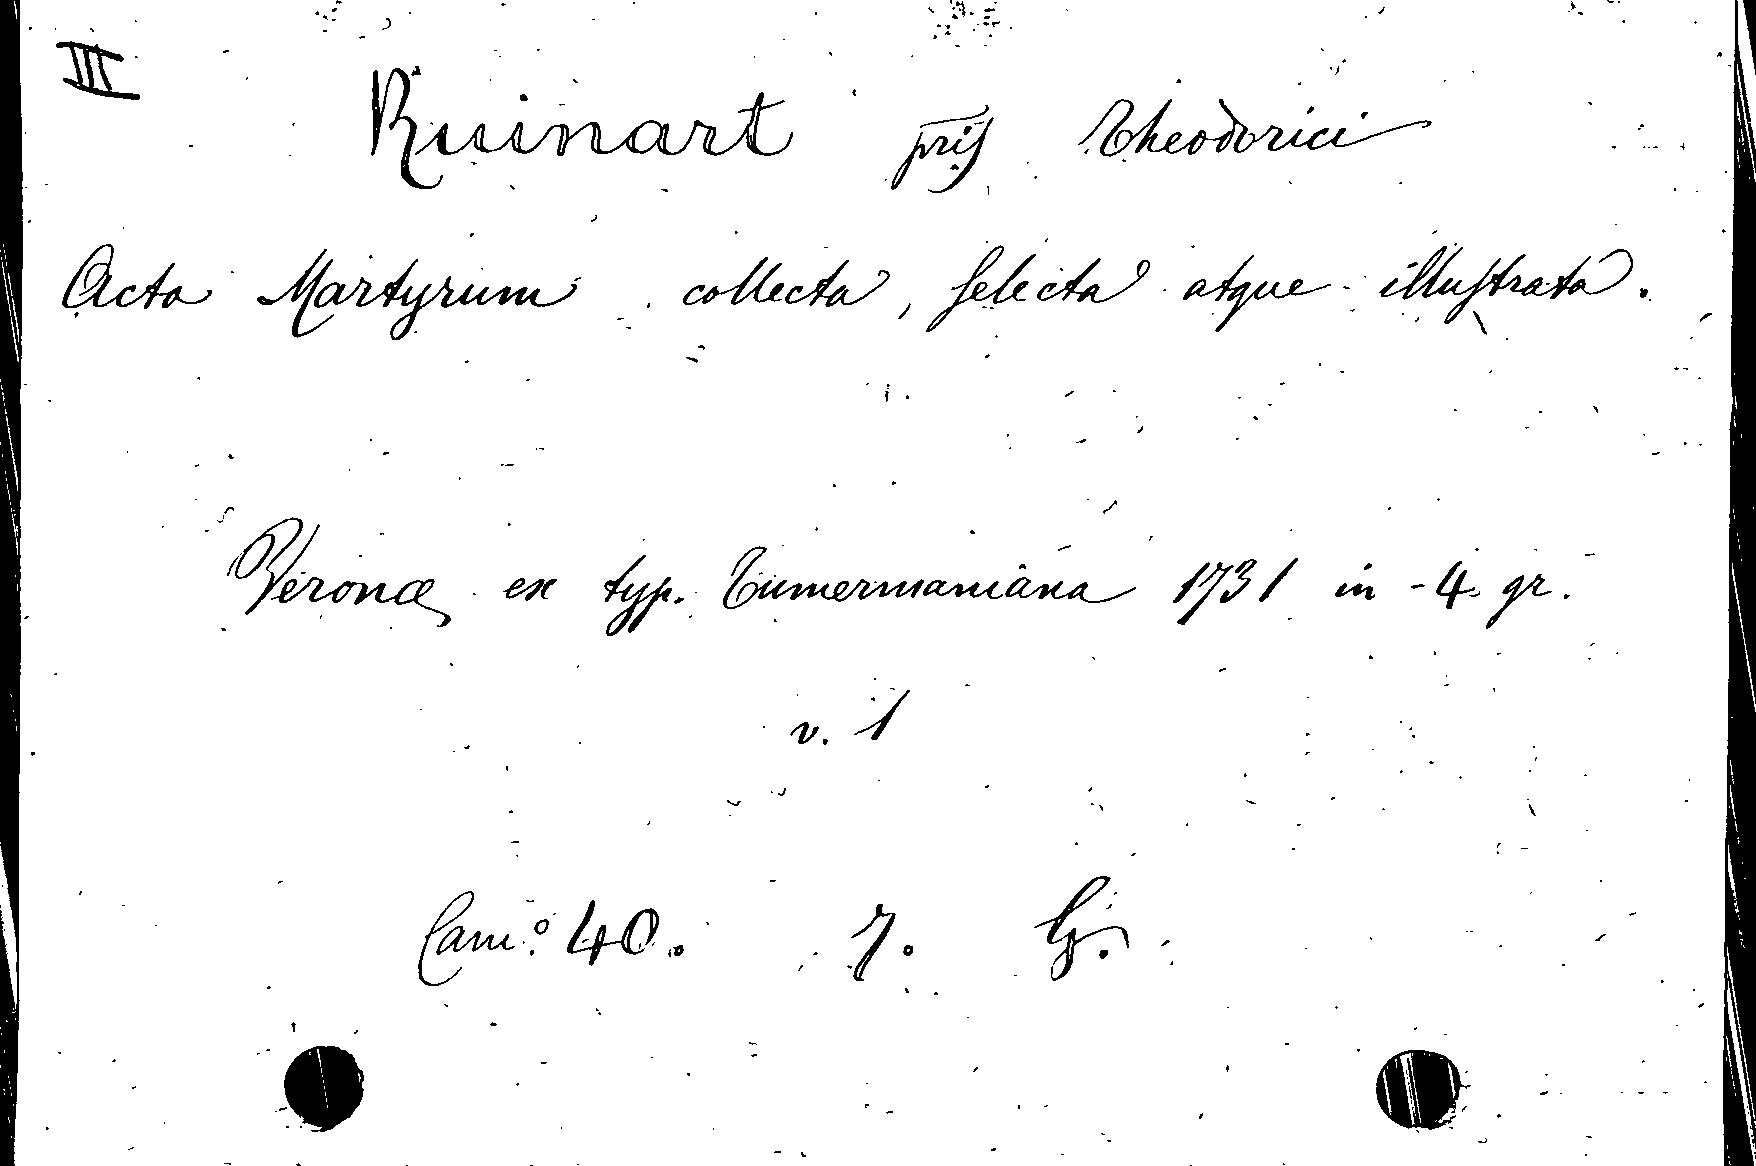 III
Ruinart pris Theodorici
Acta Martyrum collecta, selecta atque illustrata.
Veronæ ex typ. Tumermaniana 1731 in-4 gr.
v. 1
Cam.º 40. 7. G.